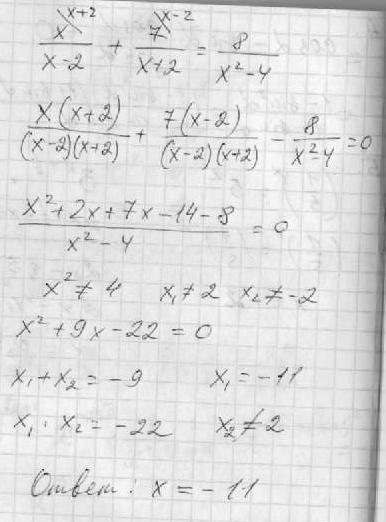 x\x+2 / x-2 + 7\x-2 / x+2 = 8 / x²-4
x(x+2) / (x-2)(x+2) + 7(x-2) / (x-2)(x+2) - 8 / x²-4 = 0
x²+2x+7x-14-8 / x²-4 = 0
x² ≠ 4 x₁ ≠ 2 x₂ ≠ -2
x²+9x-22 = 0
x₁+x₂ = -9 x₁ = -11
x₁ · x₂ = -22 x₂ ≠ 2
Ответ: x = -11